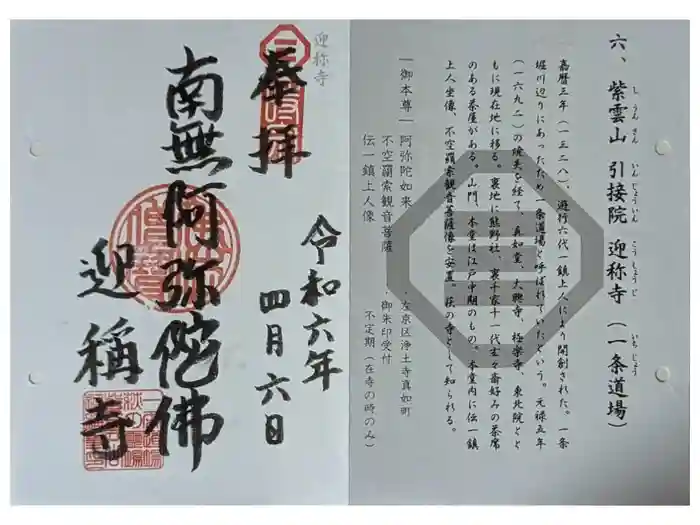 六、紫雲山 引接院 迎称寺（一条道場）
しうんざん いんじょういん こうしょうじ いちじょう
嘉暦三年（一三二八）、遊行六代一鎮上人により開創された。一条
堀川辺りにあったため一条道場と呼ばれていたという。元禄五年
（一六九二）の焼失を経て、真如堂、大興寺、極楽寺、東北院とと
もに現在地に移る。裏地に熊野社、裏千家十一代玄々斎好みの茶席
のある茶屋がある。山門、本堂は江戸中期のもの。本堂内に伝一鎮
上人坐像、不空羂索観音菩薩像を安置。萩の寺として知られる。
一御本尊一 阿弥陀如来
不空羂索観音菩薩
伝一鎮上人像
・左京区浄土寺真如町
・御朱印受付
不定期（在寺の時のみ）
迎称寺
奉拝
令和六年
四月六日
南無阿弥陀佛
迎稱寺